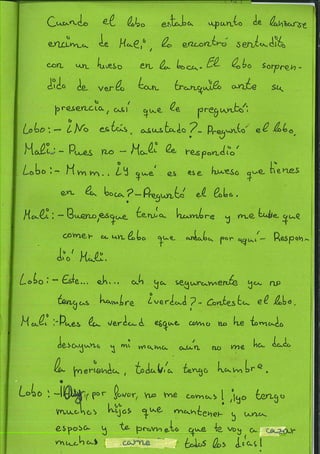 Cuando el lobo estaba apunto de lanzarse
encima de Mali, lo encontró sentadito
con un hueso en la boca. El lobo sorpren-
dido de verlo tan tranquilo ante su
presencia, así que le preguntó:
Lobo:- ¿No estás asustado?- Preguntó el lobo.
Mali:- Pues no - Mali le respondió
Lobo:- Mmm.. ¿Y qué es ese hueso que tienes
en la boca?- Preguntó el lobo.
Mali:- Bueno, esque tenía hambre y me tube que
comer a un lobo que andaba por aquí- Respon-
dió Mali.
Lobo:- Este... eh... ah ya seguramente ya no
tengas hambre ¿verdad?- Contesta el lobo.
Mali:- Pues la verdad esque como no he tomado
desayuno y mi mama aún no me ha dado
la merienda, todavía tengo hambre.
Lobo:- por favor, no me comas! ¡yo tengo
muchos hijos que mantener y una
esposa y te prometo que te voy a cazar
mucha carne todos los días!